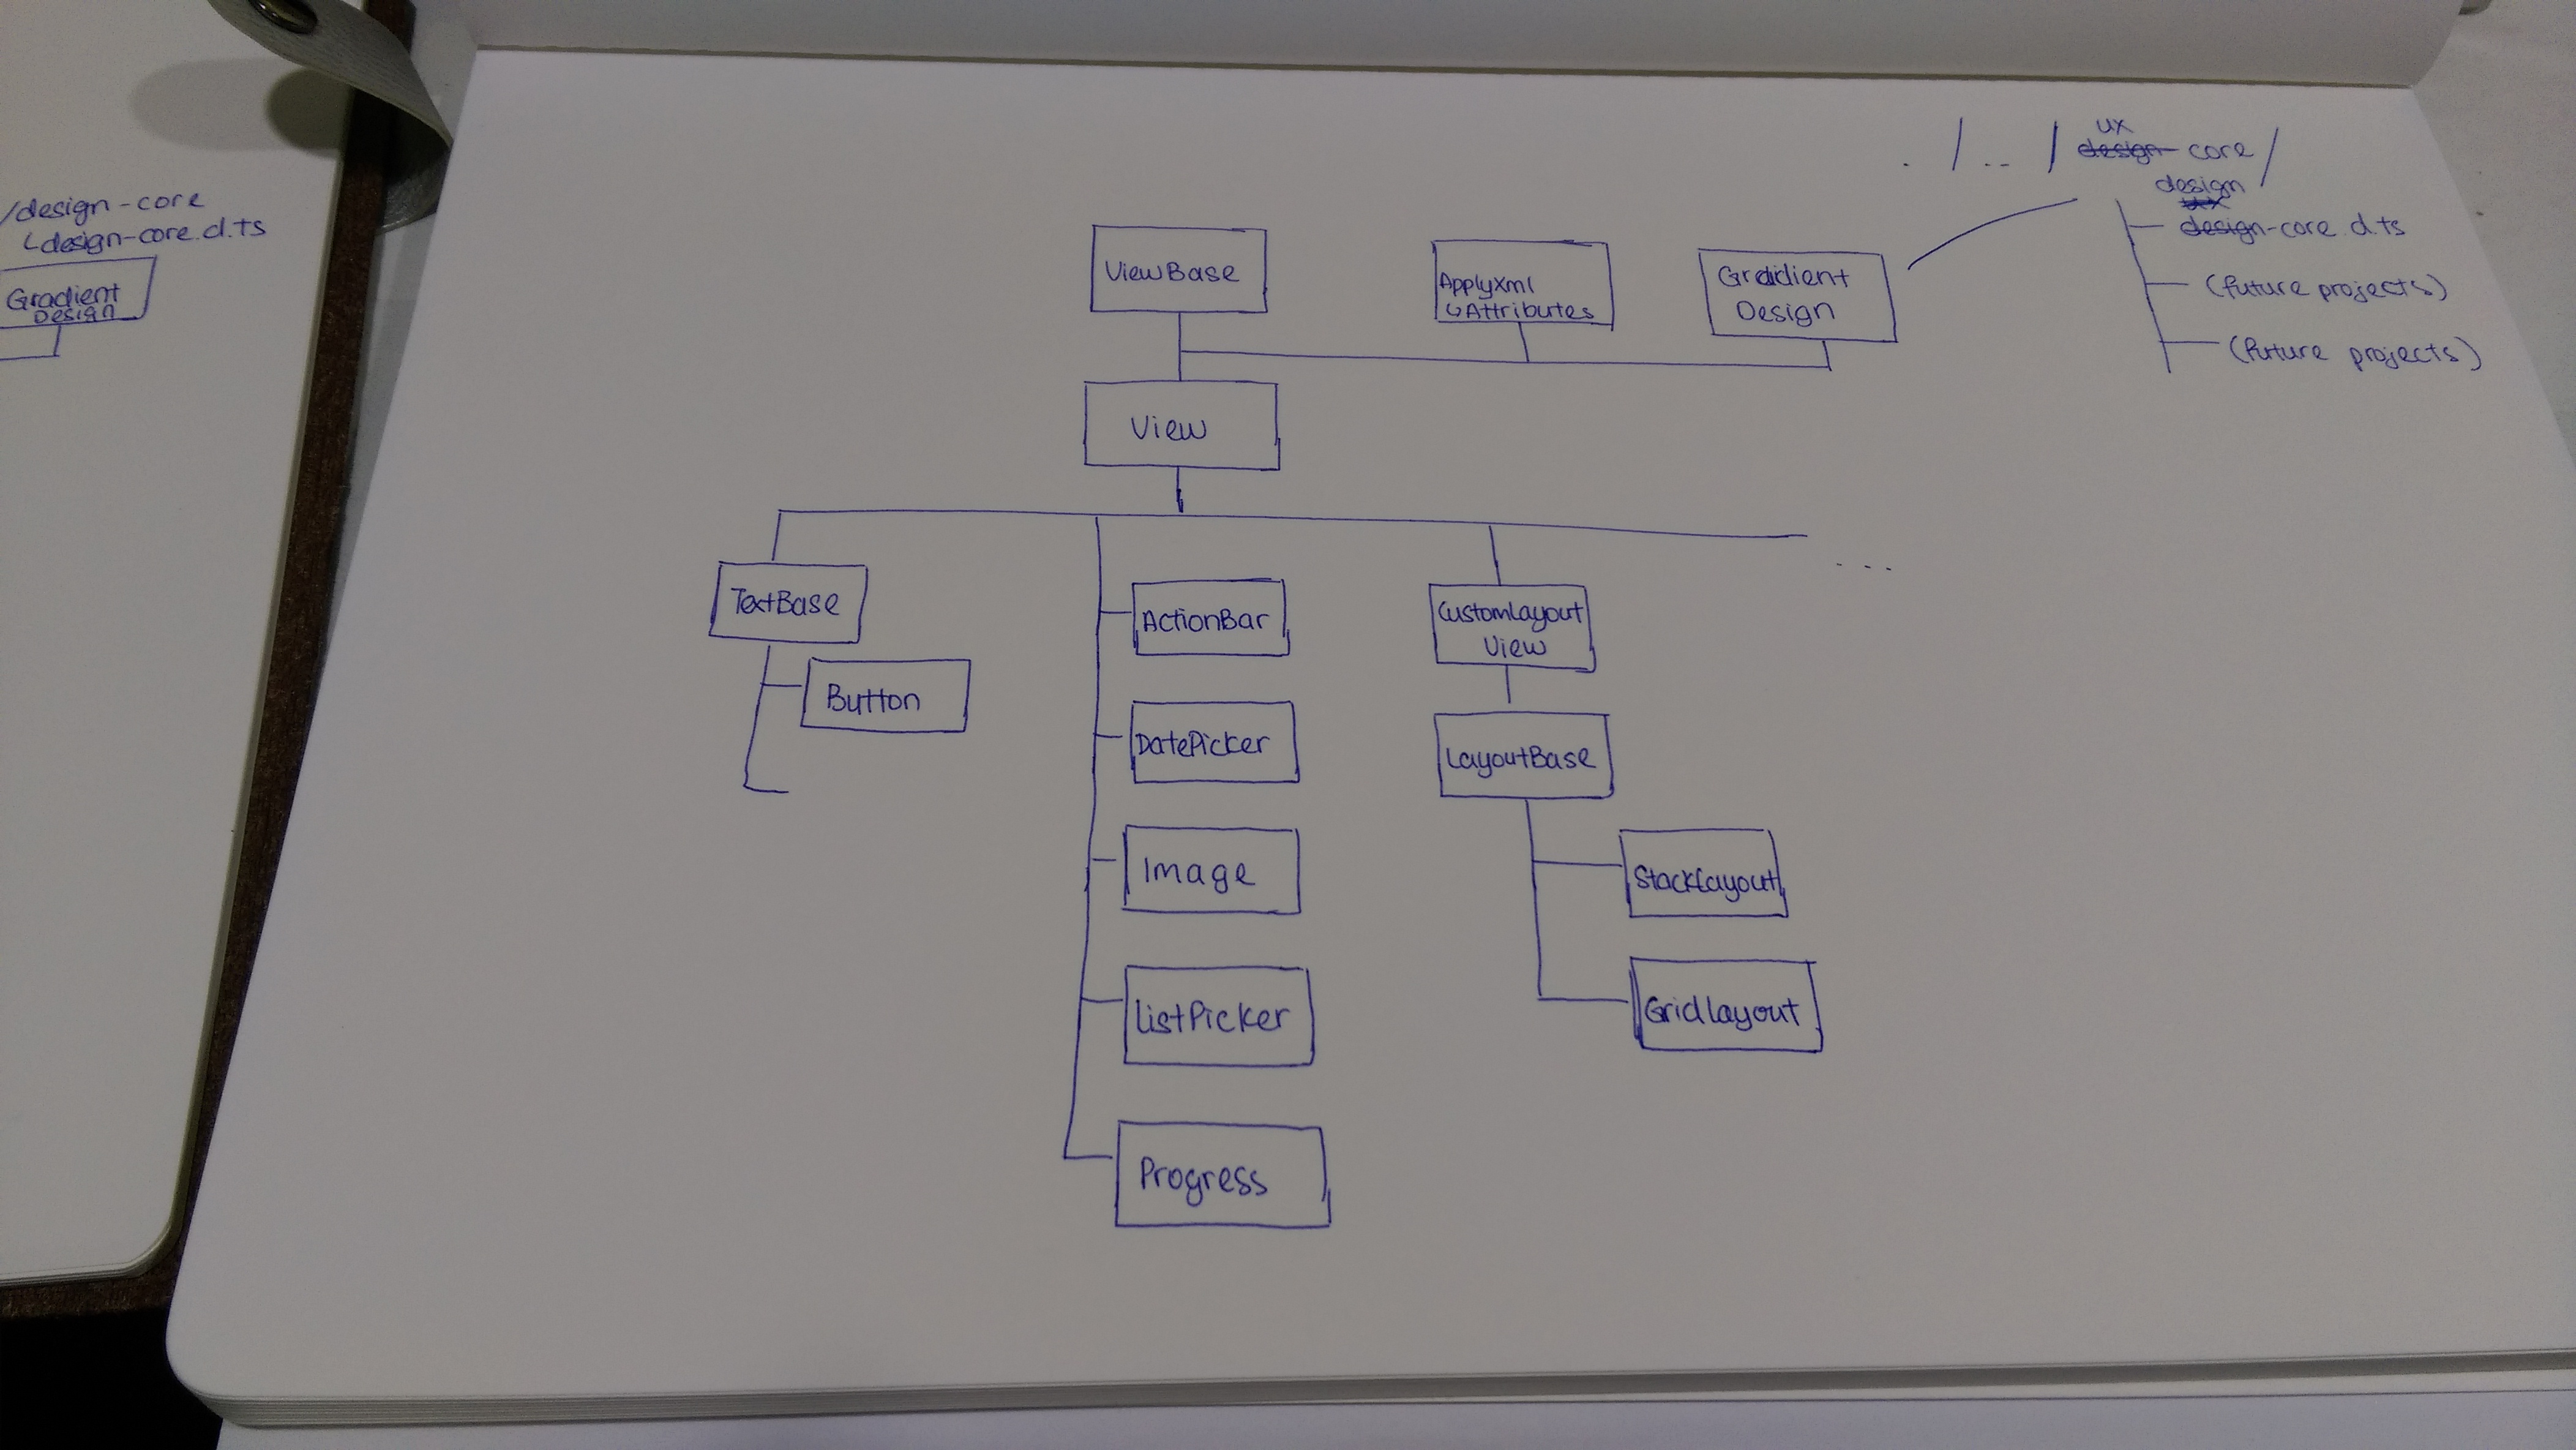 /design-core
design-core.d.ts
Gradient
Design
. / .. / ux
design- core /
design
design-core.d.ts
(future projects)
(future projects)
ViewBase
ApplyXml
Attributes
Gradient
Design
View
...
TextBase
Button
ActionBar
DatePicker
Image
ListPicker
Progress
CustomLayout
View
LayoutBase
StackLayout
GridLayout